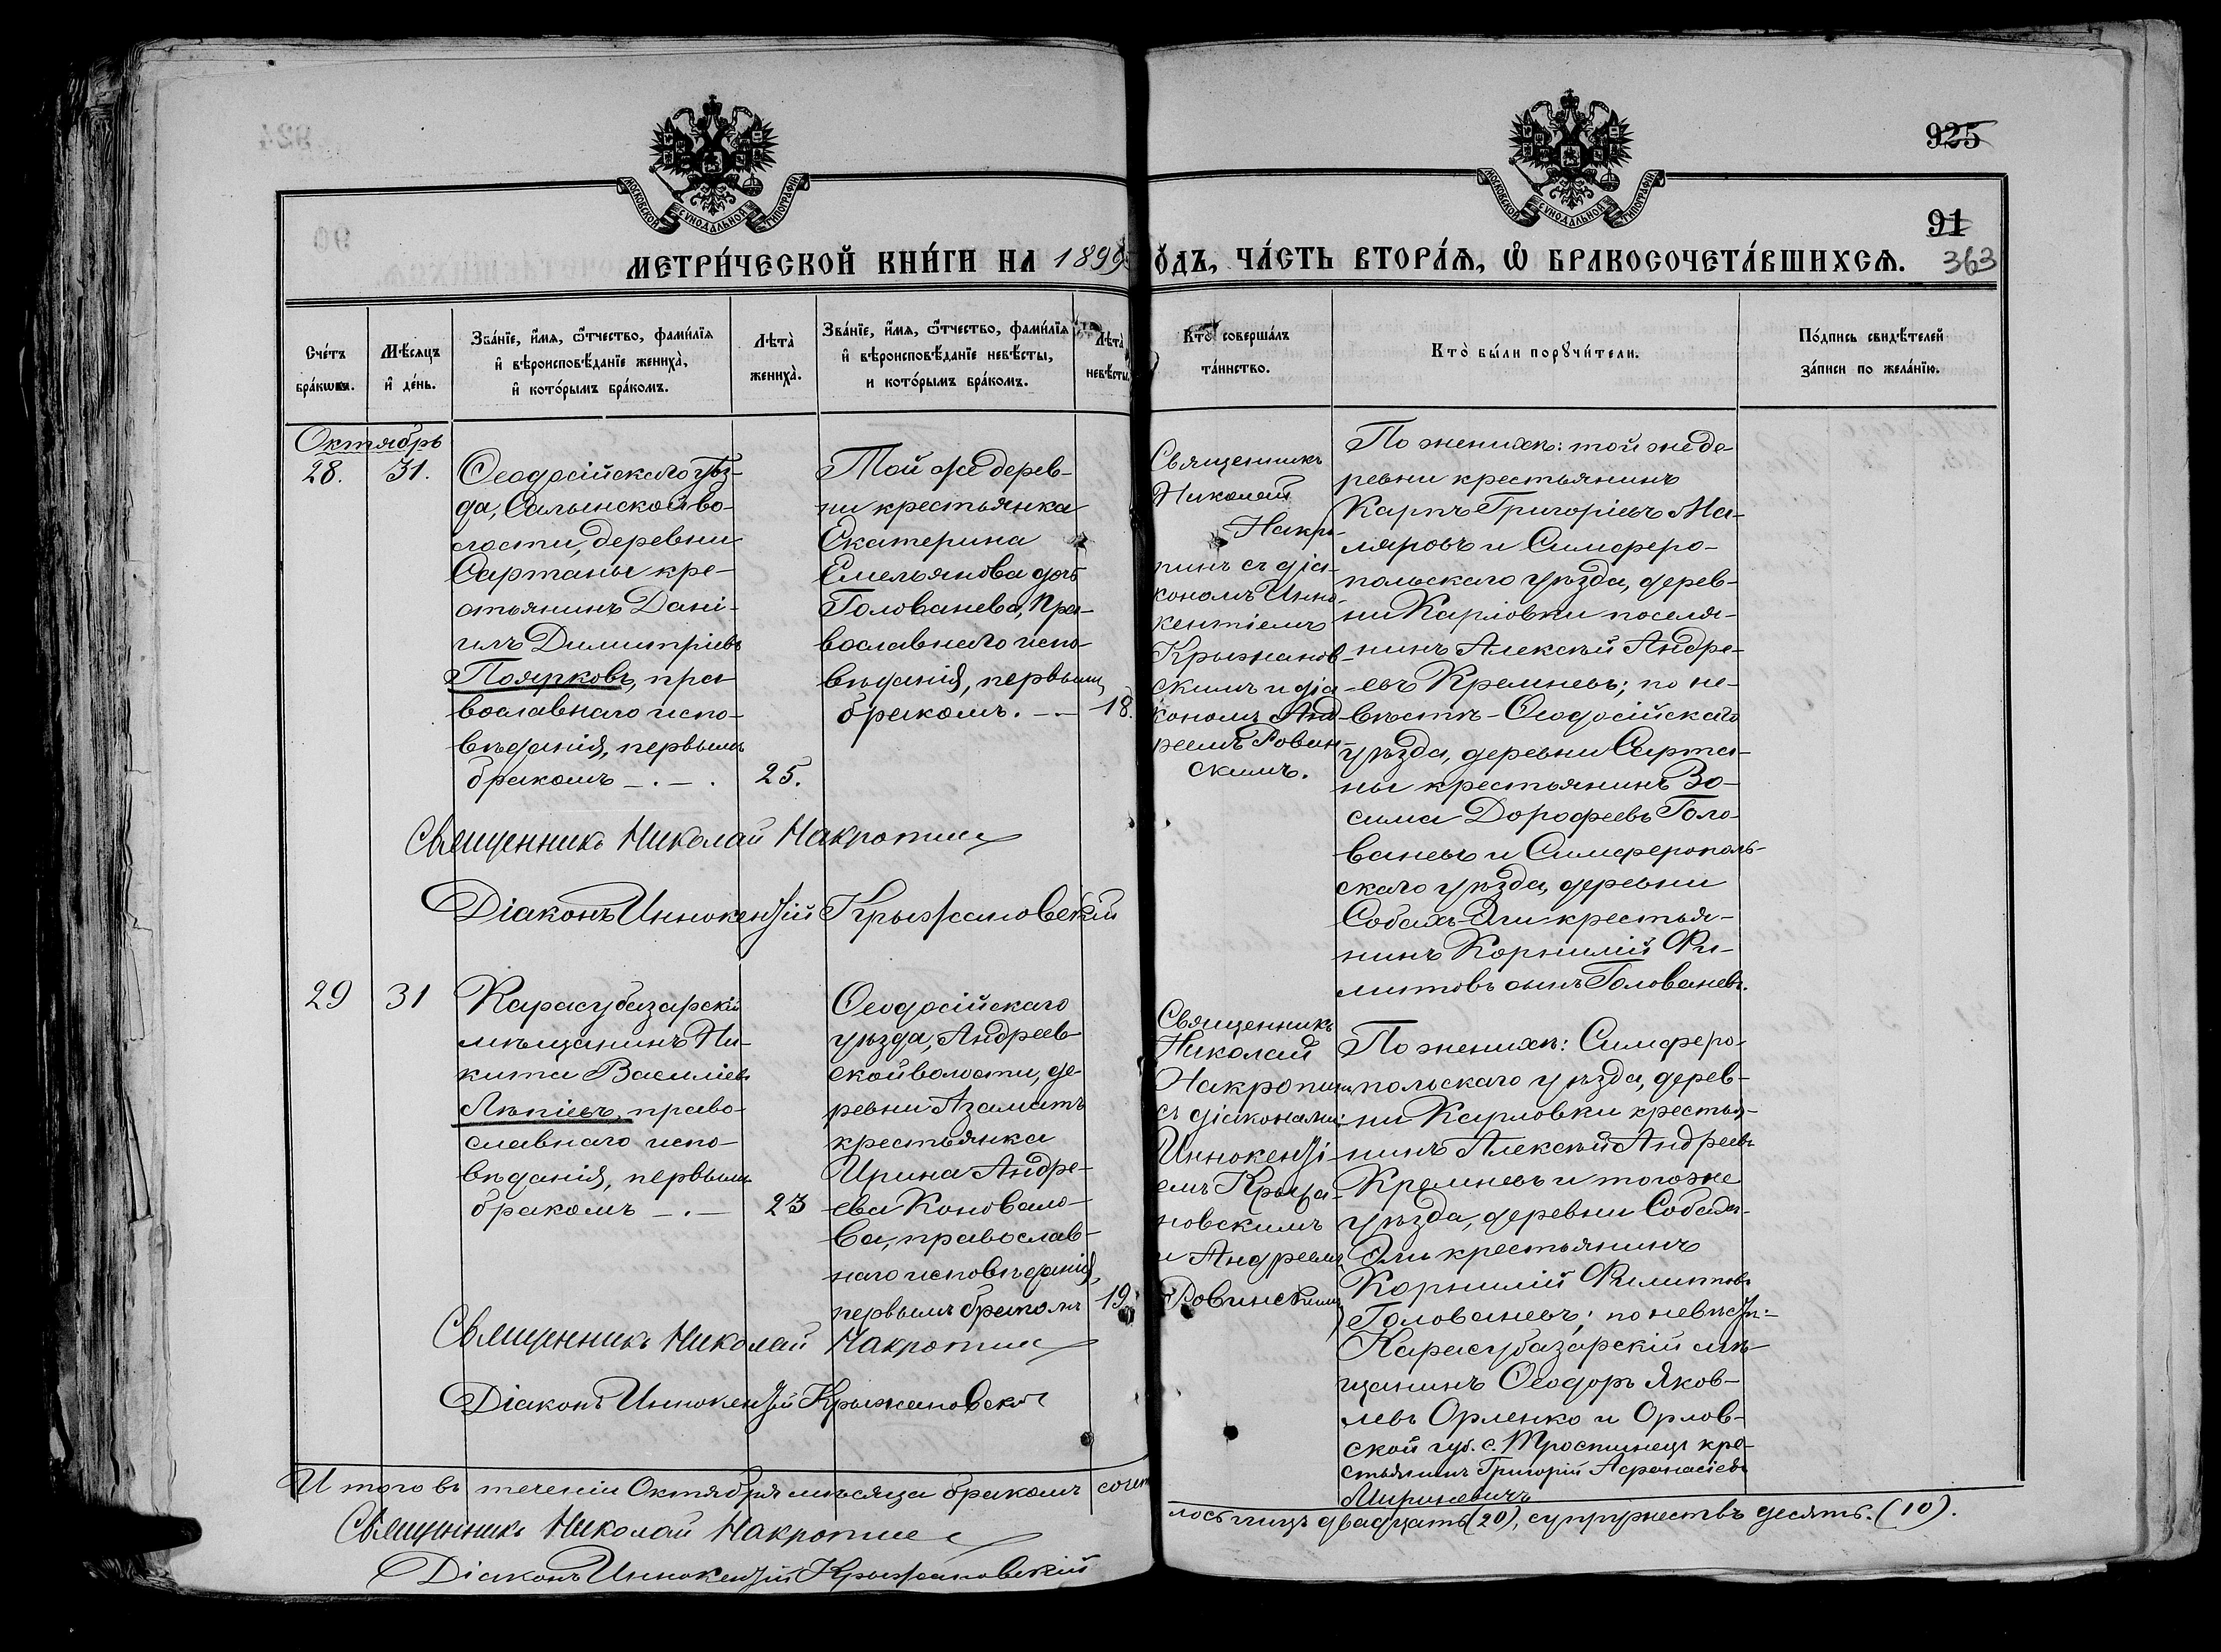 925
91
363
МОСКОВСКОЙ СУНОДАЛЬНОЙ ТИПОГРАФІИ
МОСКОВСКОЙ СУНОДАЛЬНОЙ ТИПОГРАФІИ
МЕТРИ́ЧЕСКОЙ КНИ́ГИ НА 1899 ГО́ДЪ, ЧА́СТЬ ВТОРА́Я, Ѡ БРАКОСОЧЕТА́ВШИХСЯ.
Сче́тъ бра́кωвъ.
Мѣ́сяцъ и де́нь.
Зва́нїе, и́мя, ѻ́тчество, фами́лїя
и вѣроисповѣ́данїе жениха̀,
и кото́рымъ бра́комъ.
Лѣта̀ жениха̀.
Зва́нїе, и́мя, ѻ́тчество, фами́лїя
и вѣроисповѣ́данїе невѣ́сты,
и кото́рымъ бра́комъ.
Лѣта̀ невѣ́сты.
Кто̀ соверша́лъ
та́инство.
Кто̀ бы́ли порꙋчи́тели.
По́дпись свидѣ́телей
за́писи по жела́нїю.
Октябрь
28.
31.
Ѳеодосійскаго уѣз-
да, Салынской во-
лости, деревни
Сартаны кре-
стьянинъ Дані-
илъ Димитріевъ
Поярковъ, пра-
вославнаго испо-
вѣданія, первымъ
бракомъ —.—.
25.
Той же дерев-
ни крестьянка
Екатерина
Емельянова дочь
Голованева, пра-
вославнаго испо-
вѣданія, первымъ
бракомъ. —
18.
Священникъ
Николай
Накро-
пинъ съ діа-
кономъ Инно-
кентіемъ
Крыжанов-
скимъ и діа-
кономъ Анд-
реемъ Ровин-
скимъ.
По женихѣ: той же де-
ревни крестьянинъ
Карпъ Григоріевъ Ма-
ляровъ и Симферо-
польскаго уѣзда, дерев-
ни Карловки поселя-
нинъ Алексѣй Андре-
евъ Кремневъ; по не-
вѣстѣ - Ѳеодосійскаго
уѣзда, деревни Сарта-
ны крестьянинъ Зо-
сима Дорофеевъ Голо-
ваневъ и Симферополь-
скаго уѣзда, деревни
Собахъ-Эли крестья-
нинъ Корнилій Фи-
литовъ сынъ Голованевъ.
Священникъ Николай Накропинъ
Діаконъ Иннокентій Крыжановскій
29
31
Карасубазарскій
мѣщанинъ Ни-
кита Василіевъ
Лѣпіевъ, право-
славнаго испо-
вѣданія, первымъ
бракомъ —.—
23
Ѳеодосійскаго
уѣзда, Андреев-
ской волости, де-
ревни Азаматъ
крестьянка
Ирина Андре-
ева Коновало-
ва, православ-
наго исповѣданія,
первымъ бракомъ
19
Священникъ
Николай
Накропинъ
съ діаконами:
Иннокенті-
емъ Крыжа-
новскимъ
и Андреемъ
Ровинскимъ
По женихѣ: Симферо-
польскаго уѣзда, дерев-
ни Карловки крестья-
нинъ Алексѣй Андреевъ
Кремневъ и того же
уѣзда, деревни Собахъ-
Эли крестьянинъ
Корнилій Филитовъ
Голованевъ; по невѣстѣ:
Карасубазарскій мѣ-
щанинъ Ѳеодоръ Яков-
левъ Орленко и Орлов-
ской губ. с. Тростинецъ кре-
стьянинъ Григорій Афанасіевъ
Мириневичъ
Священникъ Николай Накропинъ
Діаконъ Иннокентій Крыжановскій
Итого въ теченіи Октября мѣсяца бракомъ сочета-
лось лицъ двадцать (20), супружествъ десять. (10).
Священникъ Николай Накропинъ
Діаконъ Иннокентій Крыжановскій